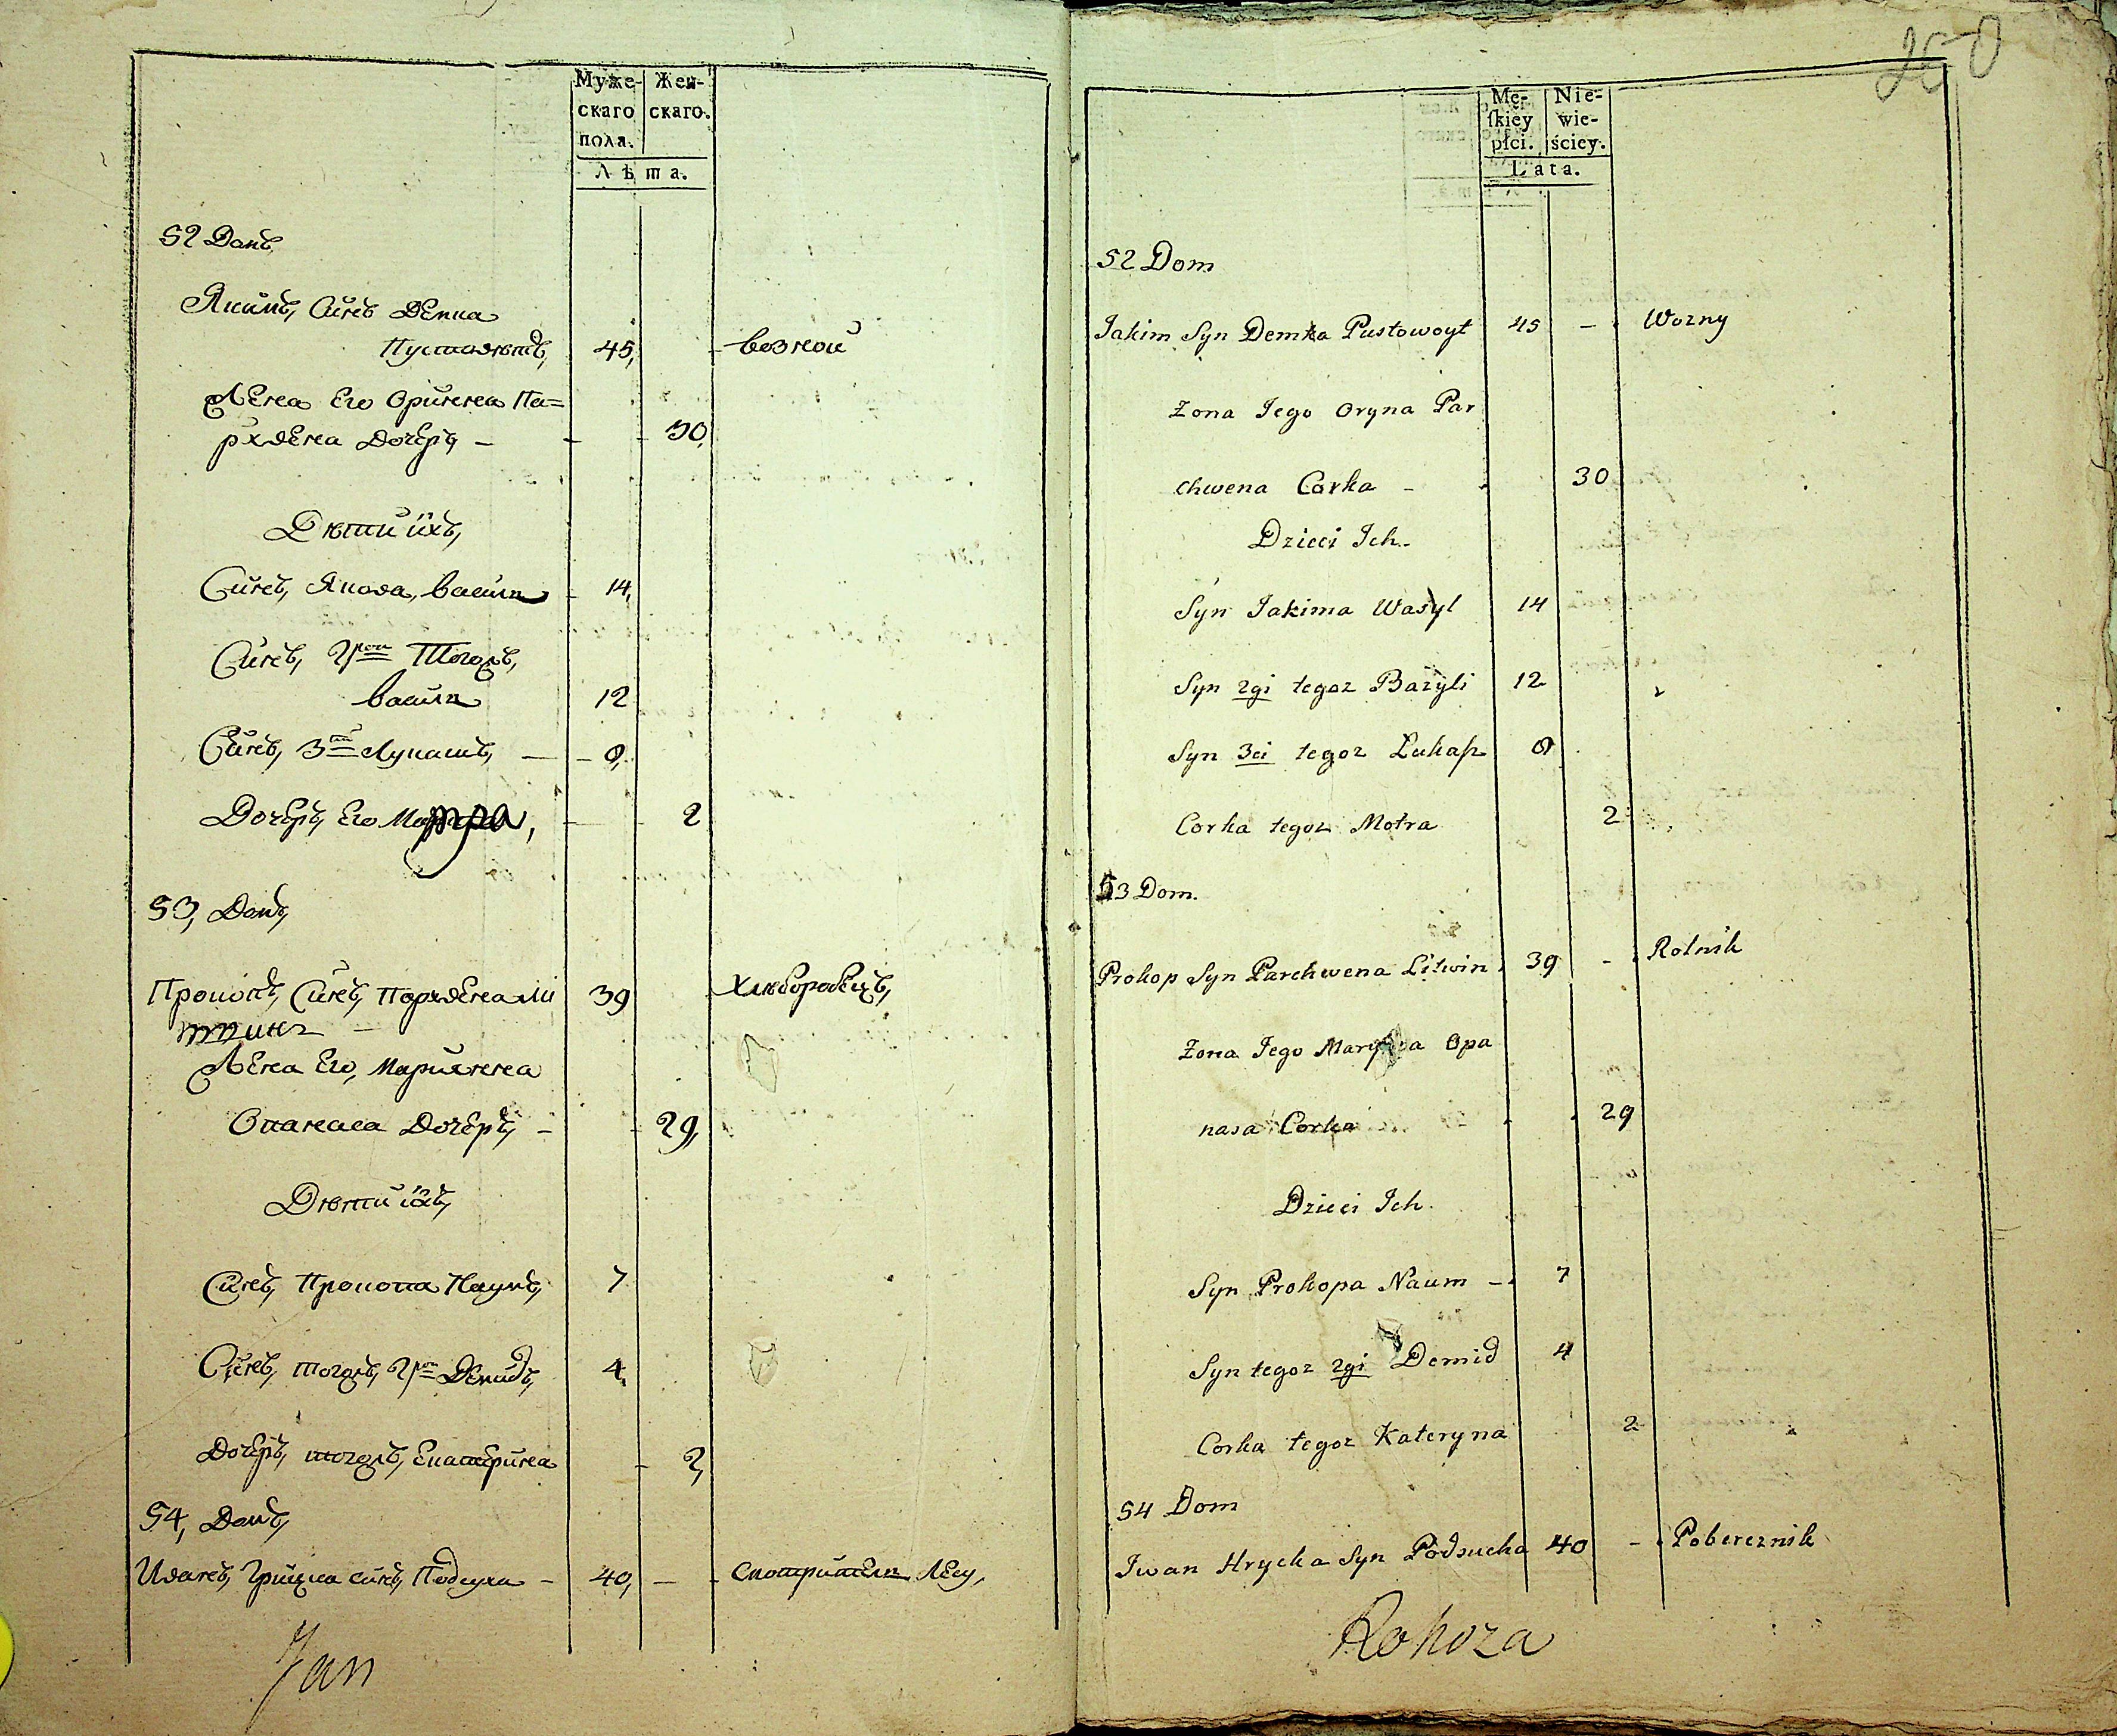 Муже-
скаго
пола.
Жен-
скаго.
Лѣта.
52 Домъ,
Якимъ, Сынъ Демка
Пустовытъ, 45, возной
Жена Его Орынна Па=
рхвена Дочеръ, - 30,
Дѣти ихъ,
Сынъ, Якова, василь 14,
Сынъ, 2рои Тогожъ,
василь 12
Сынъ, 3тй Лукашъ, 8,
Дочеръ, Его Мотра, 2
53, Домъ,
Прокопъ, Сынъ, Пархвена Ли 39 Хлѣборобецъ,
твин -
Жена Его, Марианна
Опанаса Дочеръ, - 29,
Дѣти ихъ,
Сынъ, Прокопа Наумъ, 7
Сынъ, тогожъ, 2рои Демидъ, 4,
Дочеръ, тогожъ, Екатерина 2,
54, Домъ,
Иванъ, Грицка сынъ, Подсуха - 40, - смотритель Лесу,
Jan
250
Mę-
ſkiey
płci.
Nie-
wie-
ściey.
Lata.
52 Dom
Jakim Syn Demka Pustowoyt 45 - Wozny
Zona Jego Oryna Par
chwena Corka - 30
Dzieci Ich.
Syn Jakima Wasyl 14
Syn 2gi tegoz Bazyli 12
Syn 3ci tegoz Lukaſz 8
Corka tegoz Motra 2
53 Dom.
Prokop Syn Parchwena Litwin 39 - Rolnik
Zona Jego Maryana Opa
nasa Corka 29
Dzieci Ich.
Syn Prokopa Naum - 7
Syn tegoz 2gi Demid 4
Corka tegoz Kateryna 2
54 Dom
Iwan Hrycka Syn Podsucha 40 - Pobereznik
Rohoza